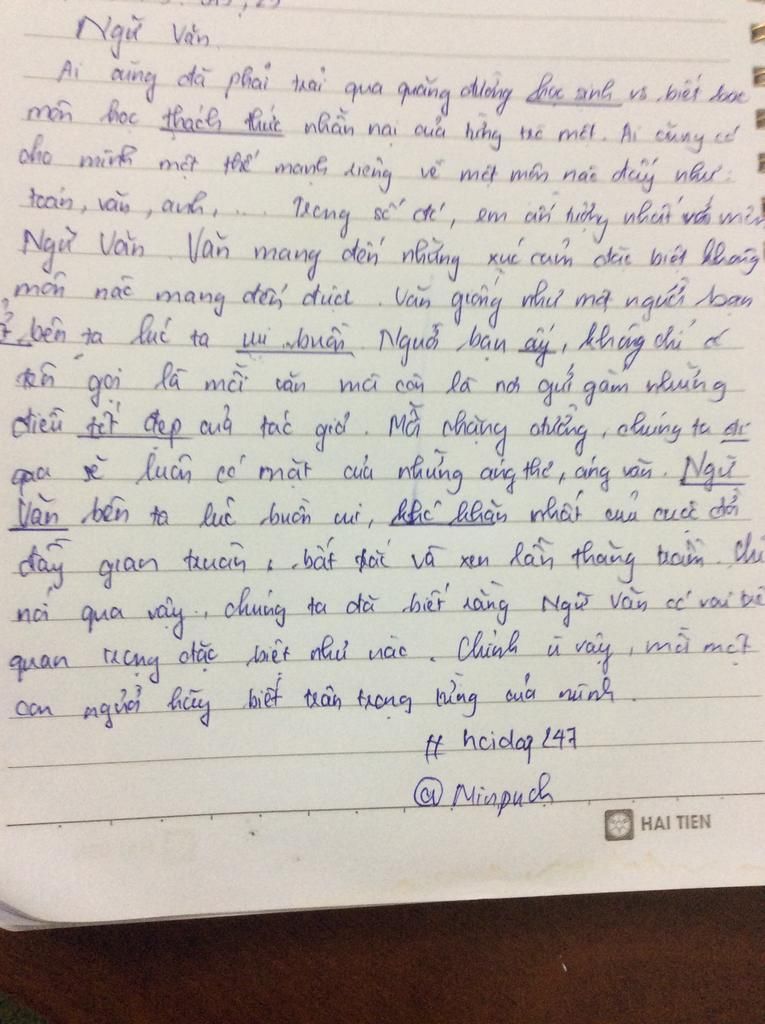 Ngữ Văn
Ai cũng đã phải trải qua quãng đường học sinh vs biết bao
môn học thách thức nhẫn nại của từng trẻ một. Ai cũng có
cho mình một thế mạnh riêng về một môn nào đấy như:
toán, văn, anh, ... Trong số đó, em ấn tượng nhất với môn
Ngữ Văn. Văn mang đến những xúc cảm đặc biệt không
môn nào mang đến được. Văn giống như một người bạn
ở bên ta lúc ta vui buồn. Người bạn ấy, không chỉ có
tên gọi là mỗi văn mà còn là nơi gửi gắm những
điều tốt đẹp của tác giả. Mỗi chặng đường, chúng ta đi
qua sẽ luôn có mặt của những áng thơ, áng văn. Ngữ
Văn bên ta lúc buồn vui, khó khăn nhất của cuộc đời
đầy gian truân, bất trắc và xen lẫn thăng trầm. Chỉ
nói qua vậy, chúng ta đã biết rằng Ngữ Văn có vai trò
quan trọng đặc biệt như nào. Chính vì vậy, mỗi một
con người hãy biết trân trọng từng của mình.
# hoidap247
@ Minpuch
HAI TIEN